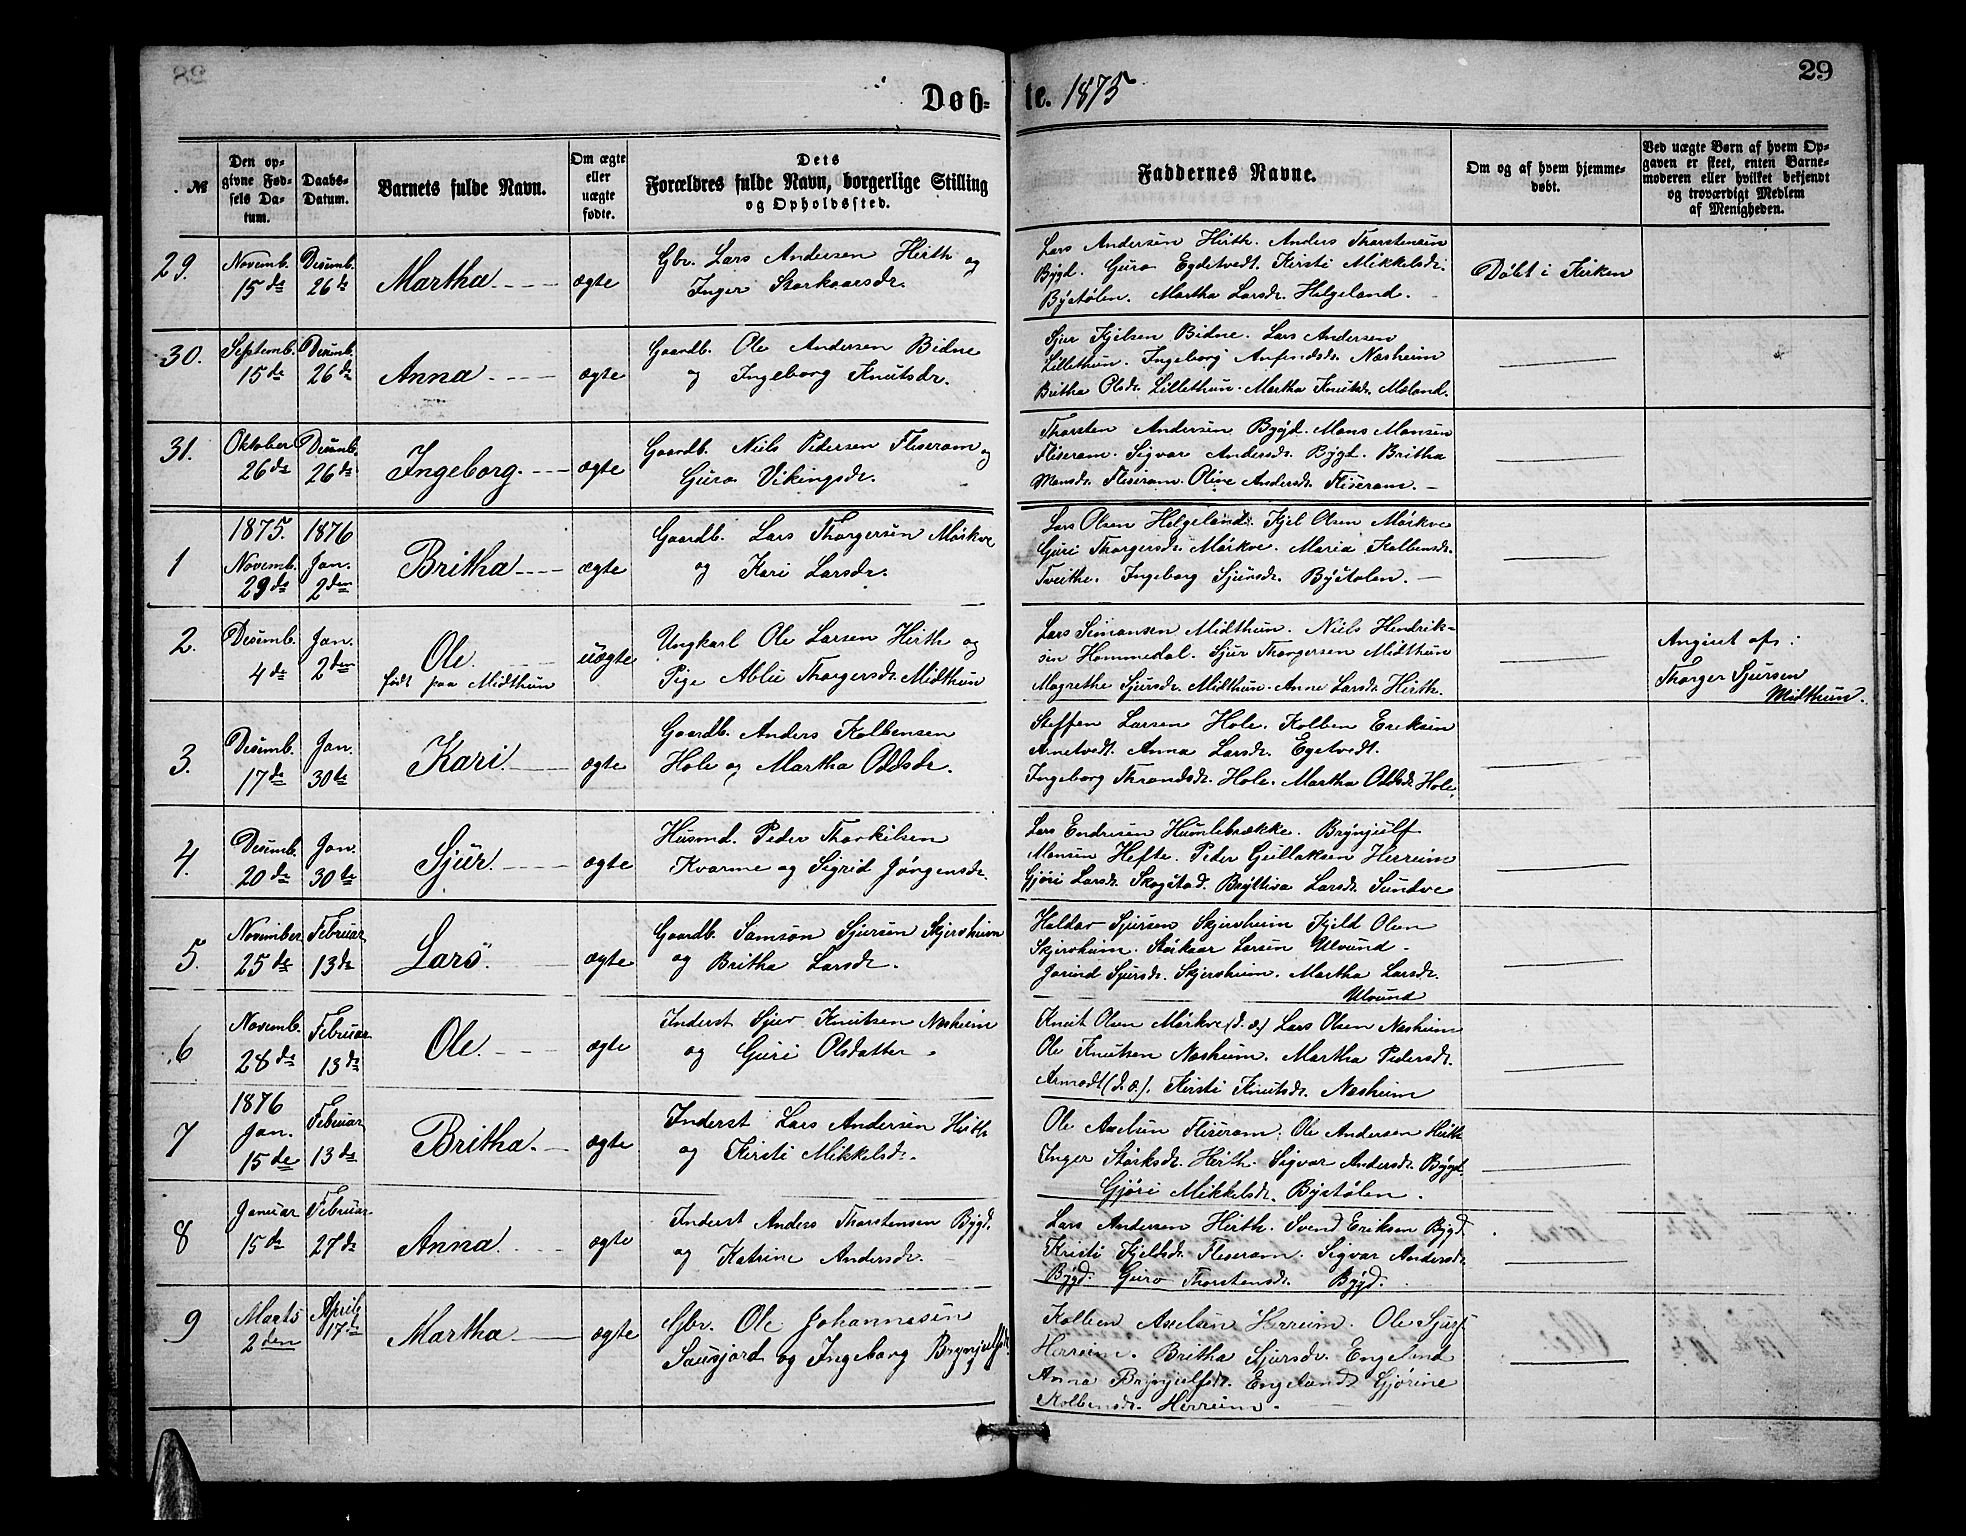 29
Døb-te. 1875
№
Den op-
givne Fød-
sels Da-
tum.
Daabs-
Datum.
Barnets fulde Navn.
Om ægte
eller
uægte
fødte.
Dets
Forældres fulde Navn, borgerlige Stilling
og Opholdssted.
Faddernes Navne.
Om og af hvem hjemme-
døbt.
Ved uægte Børn af hvem Op-
gaven er skeet, enten Barne-
moderen eller hvilket bekjendt
og troværdigt Medlem
af Menigheden.
29. Novemb. 15de Desemb. 26de Martha ægte
Gbr. Lars Andersen Hirth og
Inger Storkaarsdr.
Lars Andersen Hirth. Anders Thorstensen
Bygd. Guro Egdetvedt. Kirsti Mikkelsdr.
Bystølen. Martha Larsdr. Helgeland.
Døbt i Kirken
30. Septemb. 15de Desemb. 26de Anna ægte
Gaardb. Ole Andersen Bidne
og Ingeborg Knutsdr.
Sjur Kjelsen Bidne. Lars Andersen
Lillethun. Ingeborg Anfindsdr. Næsheim
Britha Olsdr. Lillethun. Martha Knutsdr. Møland.
31. Oktober 26de Desemb. 26de Ingeborg. ægte
Gaardb. Niels Pedersen Fliseram og
Guro Vikingsdr.
Thorsten Andersen Bygd. Mons Monsen
Fliseram. Sigvar Andersdr. Bygd. Britha
Monsdr. Fliseram. Oline Andersdr. Fliseram.
1 1875. Novemb. 29de 1876 Jan. 2den Britha ægte
Gaardb. Lars Thorgersen Mørkve
og Kari Larsdr.
Lars Olsen Helgeland. Kjel Olsen Mørkve
Guri Thorgersdr. Mørkve. Maria Kolbensdr.
Tveithe. Ingeborg Sjursdr. Bystølen.
2. Desemb. 4de Jan. 2den Ole. uægte
født paa Midthun
Ungkarl Ole Larsen Hirth og
Pige Ablu Thorgersdr. Midthun
Lars Simonsen Midthun. Niels Hendrik-
sen Hommedal. Sjur Thorgersen Midthun
Magrethe Sjursdr. Midthun. Anne Larsdr. Hirth.
Angivet af:
Thorger Sjursen
Midthun.
3. Desemb. 17de Jan. 30te Kari. ægte
Gaardb. Anders Kolbensen
Hole og Martha Oddsdr.
Steffen Larsen Hole. Kolben Eriksen
Arnetvedt. Anna Larsdr. Egetvedt.
Ingeborg Throndsdr. Hole. Martha Oddsdr. Hole.
4. Desemb. 20de Jan. 30te Sjur. ægte
Husmd. Peder Thorkilsen
Kvarme og Sigrid Jørgensdr.
Lars Endresen Humlebrække. Brynjulf
Monsen Hefte. Peder Gullaksen Herreim
Gjøri Larsdr. Skogstad. Bryttiva Larsdr. Sundve
5. November 25de Februar 13de Lars. ægte
Gaardb. Samson Sjursen Skjersheim
og Britha Larsdr.
Haldor Sjursen Skjersheim Kjeld Olsen
Skjersheim. Størkaar Larsen Ulvund.
Jorind Sjursdr. Skjersheim. Martha Larsdr.
Ulvund
6 Novemb. 28de Februar 13de Ole. ægte
Inderst Sjur Knutsen Næsheim
og Guri Olsdatter.
Knut Olsen Mørkve (d. æ.) Lars Olsen Næsheim
Ole Knutsen Næsheim. Martha Pedersdr.
Armodt (d. æ.). Kirsti Knutsdr. Næsheim
7 1876 Jan. 15de Februar 13de Britha. ægte
Inderst Lars Andersen Hirth
og Kirsti Mikkelsdr.
Ole Axelsen Fliseram. Ole Andersen Hirth
Inger Størksdr. Hirth. Sigvar Andersdr. Bygd.
Gjøri Mikkelsdr. Bystølen.
8 Januar 15de Februar 27de Anna. ægte
Inderst Anders Thorstensen Bygd.
og Katrine Andersdr.
Lars Andersen Hirth. Svend Eriksen Bygd
Kristi Kjeldsdr. Fliseram. Sigvar Andersdr.
Bygd. Guro Thorstensdr. Bygd.
9 Marts 2den April 17de Martha ægte
Gbr. Ole Johannesen
Sausjord og Ingeborg Brynjulfsdr.
Kolben Axelsen Herreim. Ole Sjurs.
Herreim. Britha Sjursdr. Engeland
Anna Brynjulfsdr. Engeland Gjørine
Kolbensdr. Herreim.